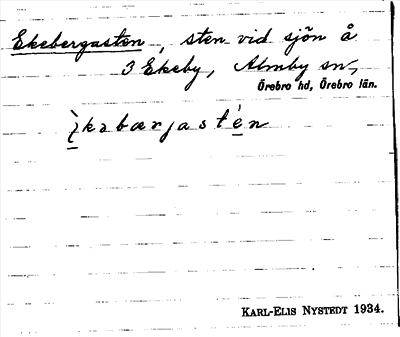 Ekebergasten, sten vid sjön å
3 Ekeby, Almby sn,
Örebro hd, Örebro län.
KARL-ELIS NYSTEDT 1934.